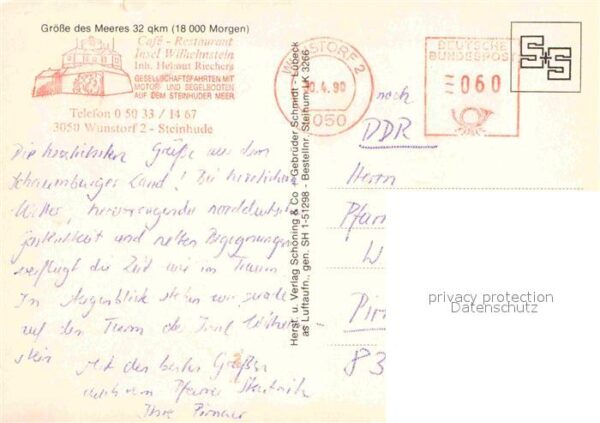 Größe des Meeres 32 qkm (18 000 Morgen)
Café - Restaurant
Insel Wilhelmstein
Inh. Helmut Buchers
GESELLSCHAFTSFAHRTEN MIT
MOTOR- UND SEGELBOOTEN
AUF DEM STEINHUDER MEER
Telefon 0 50 33 / 14 67
3050 Wunstorf 2 - Steinhude
WUNSTORF 2
0.4.90
3050
DEUTSCHE
BUNDESPOST
060
S+S
Herst. u. Verlag Schöning & Co + Gebrüder Schmidt - Lübeck
as Luftaufn., gen. SH 1-51298 - Bestellnr. Steinhum LK 3266
Die herzlichsten Grüße aus dem
Schaumburger Land! Bei herrlichem
Wetter, hervorragender norddeutscher
Gastlichkeit und netten Begegnungen
verfliegt die Zeit wie im Traum.
Im Augenblick stehen wir gerade
auf dem Turm der Insel Wilhelm
stein Mit den besten Grüßen
auch von Pfarrer
Ihre Pirnaer
nach
DDR
Herrn
Pfar
W
Pir
83
privacy protection
Datenschutz